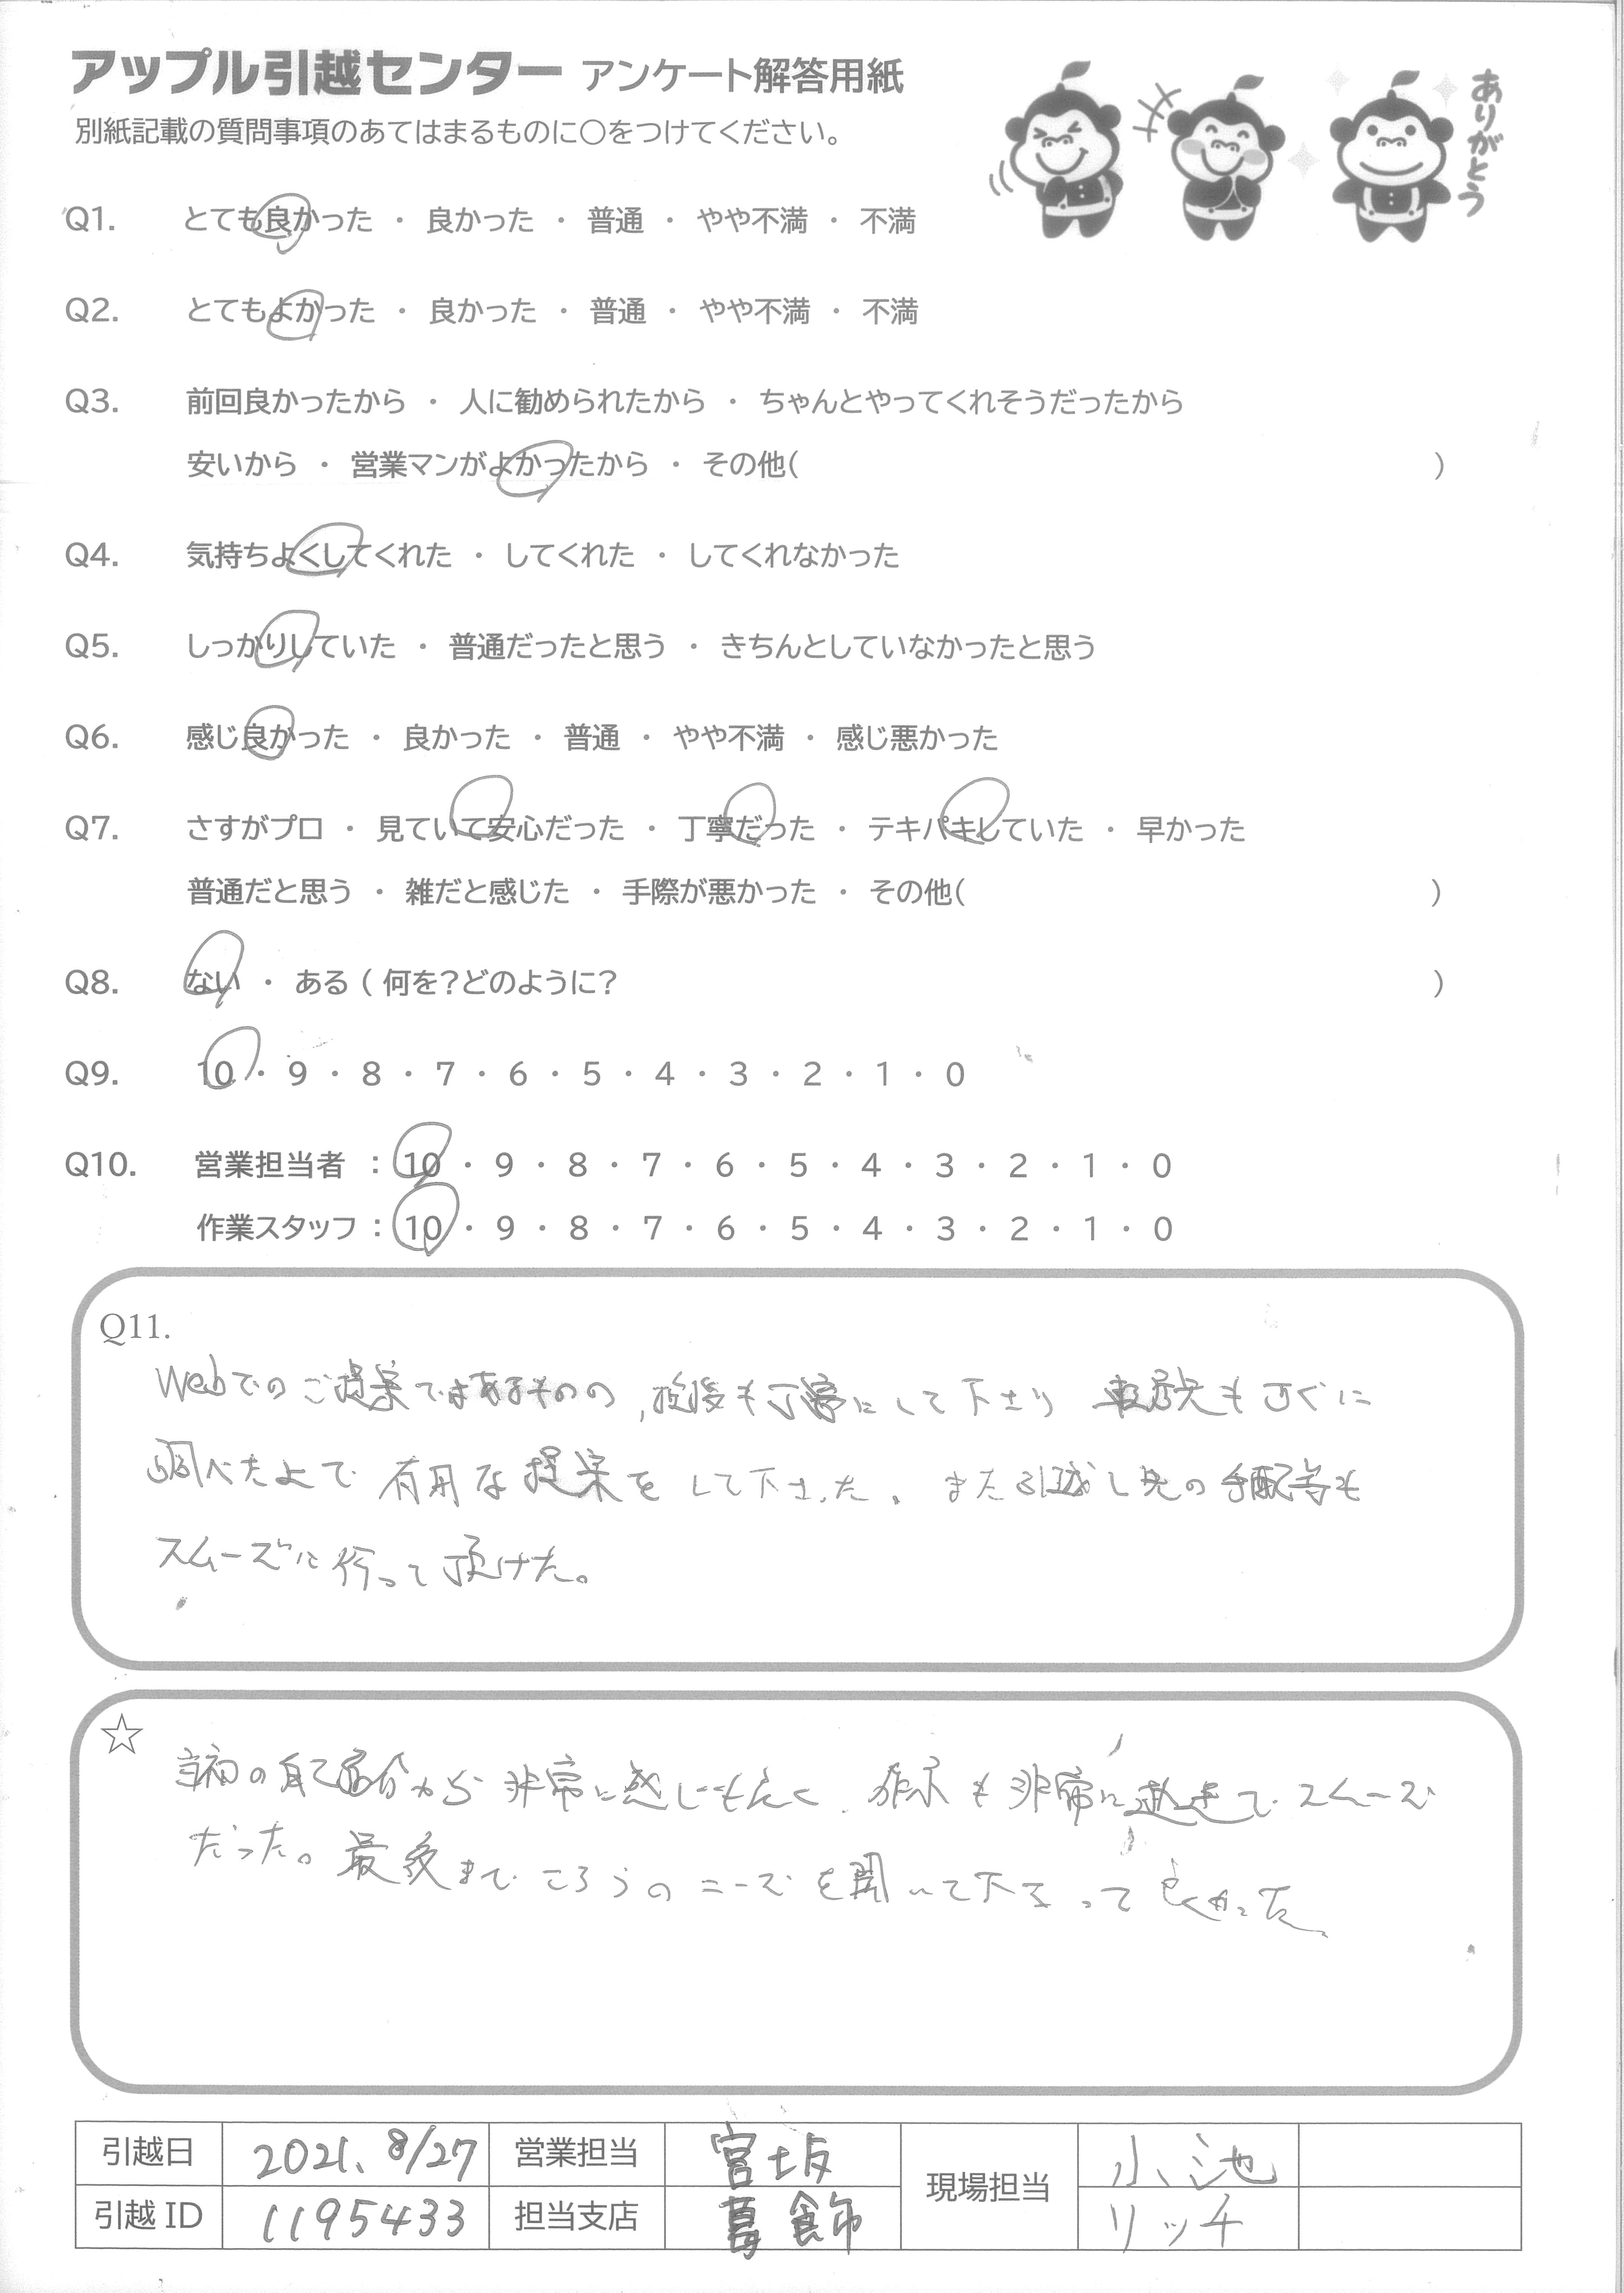 アップル引越センター アンケート解答用紙
別紙記載の質問事項のあてはまるものに○をつけてください。
ありがとう
Q1. とても良かった ・ 良かった ・ 普通 ・ やや不満 ・ 不満
Q2. とてもよかった ・ 良かった ・ 普通 ・ やや不満 ・ 不満
Q3. 前回良かったから ・ 人に勧められたから ・ ちゃんとやってくれそうだったから
安いから ・ 営業マンがよかったから ・ その他( )
Q4. 気持ちよくしてくれた ・ してくれた ・ してくれなかった
Q5. しっかりしていた ・ 普通だったと思う ・ きちんとしていなかったと思う
Q6. 感じ良かった ・ 良かった ・ 普通 ・ やや不満 ・ 感じ悪かった
Q7. さすがプロ ・ 見ていて安心だった ・ 丁寧だった ・ テキパキしていた ・ 早かった
普通だと思う ・ 雑だと感じた ・ 手際が悪かった ・ その他( )
Q8. ない ・ ある ( 何を?どのように? )
Q9. 10 ・ 9 ・ 8 ・ 7 ・ 6 ・ 5 ・ 4 ・ 3 ・ 2 ・ 1 ・ 0
Q10. 営業担当者 : 10 ・ 9 ・ 8 ・ 7 ・ 6 ・ 5 ・ 4 ・ 3 ・ 2 ・ 1 ・ 0
作業スタッフ : 10 ・ 9 ・ 8 ・ 7 ・ 6 ・ 5 ・ 4 ・ 3 ・ 2 ・ 1 ・ 0
Q11.
Webでのご提案ではあるものの、挨拶も丁寧にして下さり 転居先もすぐに
調べた上で 有用な提案をして下さった。また引越し先の手配等も
スムーズに行って頂けた。
☆
当初の から非常に感じもよく、作業も非常に でスムーズ
だった。最後まで こちらのニーズを聞いて下さって よかった
引越日 2021、8/27 営業担当 宮坂 現場担当 小池
引越ID 1195433 担当支店 葛飾 リッチ